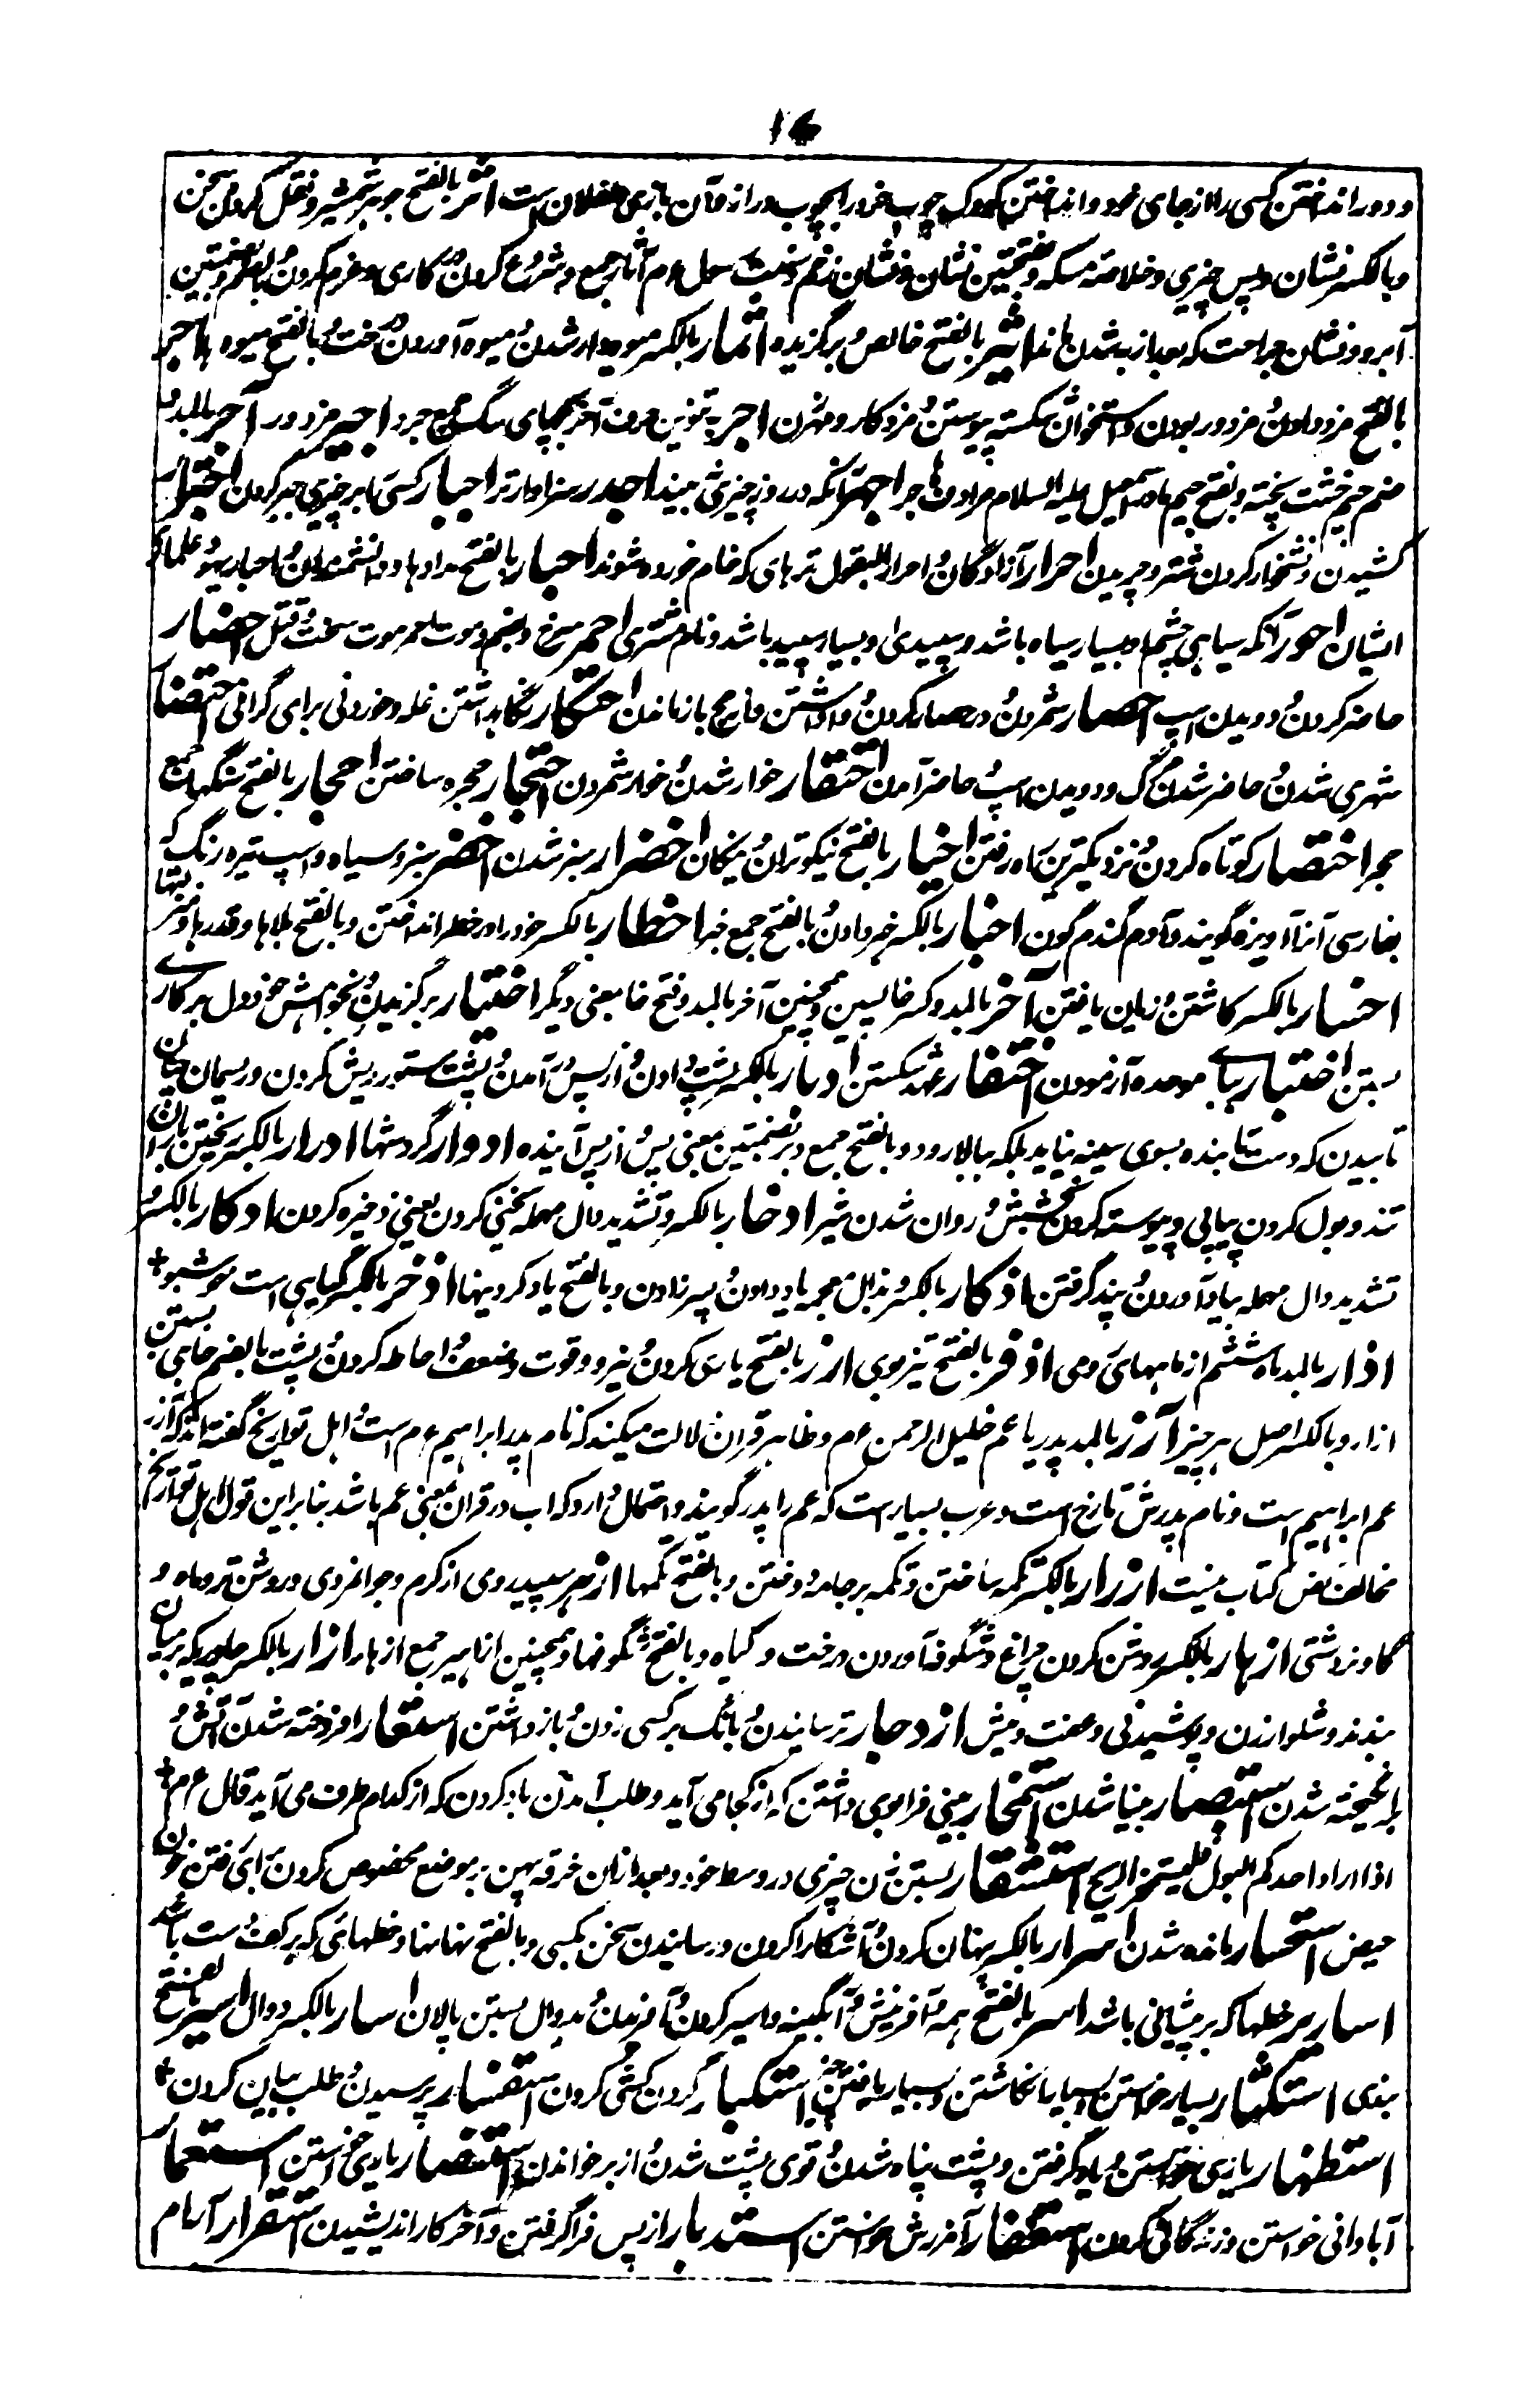 ۱۶
و دور انداختن کسی را از جای خود و انداختن کودک چوب خرد را بچوب دراز و آن بازی طفلان است اثر بالفتح جوهر شمشیر و نقل کردن سخن
و بالکسر نشان و پس چیزی و خلاصه مسکه و بفتحتین نشان و نشان زخم و سنت رسول عم آثار جمع و شروع کردن در کاری و عزم کردن و بالضم و بضمتین
آبرو و نشان جراحت که بعد از به شدن ماند اثیر بالفتح خالص و برگزیده اثمار بالکسر میوه دار شدن و میوه آوردن درخت و بالفتح میوه ها اجر
بالفتح مزد دادن و مزدور بودن و استخوان شکسته پیوستن و مزد کار و مهر زن اجر به تنوین حرف آخر بچهای سگ جمع جرو اجیر مزدور آجر بالمد و
ضم جیم خشت پخته و بفتح جیم مادر اسمعیل علیه السلام مرادف هاجر اجهر آنکه در روز چیزی نه بیند اجدر سزاوارتر اجبار کسی را بر چیزی جبر کردن اجترار
کشیدن و نشخوار کردن شتر و چریدن احرار آزادگان و احرار البقول تره های که خام خورده شوند احبار بالفتح مدادها و دانشمندان و احبار یهود علمای
ایشان احور آنکه سیاهی چشم او بسیار سیاه باشد و سپیدی او بسیار سپید باشد و نام مشتری احمر سرخ و عجم و موت احمر موت سخت و قتل احضار
حاضر کردن و دویدن اسپ احصار شمردن و در حصار کردن و واداشتن و از حج باز ماندن احتکار نگاهداشتن غله و خوردنی برای گرانی احتضار
شهری شدن و حاضر شدن مرگ و دویدن اسپ و حاضر آمدن احتقار خوار شدن و خوار شمردن احتجار حجره ساختن احجار بالفتح سنگها جمع
حجر اختصار کوتاه کردن و نزدیکترین راه رفتن اخیار بالفتح نیکوتران و نیکان اخضرار سبز شدن اخضر سبز و سیاه و اسپ تیره رنگ که
بفارسی آنرا آویزه گویند و آدم گندم گون اخبار بالکسر خبر دادن و بالفتح جمع خبر اخطار بالکسر خود را در خطر انداختن و بالفتح بلاها و قدرها و منزلتها
اخسار بالکسر کاشتن و زیان یافتن آخر بالمد و کسر خا پسین و همچنین آخر بالمد و فتح خا بمعنی دیگر اختیار برگزیدن و بخواهش خود دل بر کاری
بستن اختبار ببای موحده آزمودن اختفار عهد شکستن ادبار بالکسر پشت دادن و از پس در آمدن و پشت ستور ریش کردن و ریسمان چنان
تابیدن که دست تابنده بسوی سینه نیاید بلکه ببالا رود و بالفتح جمع دبر بضمتین بمعنی پس و از پس آینده ادوار گردشها ادرار بالکسر ریختن باران را
تند و بول کردن پیاپی و پیوسته کردن بخشش و روان شدن شیر ادخار بالکسر و تشدید دال مهمله یخنی کردن یعنی ذخیره کردن ادکار بالکسر و
تشدید دال مهمله بیاد آوردن و پند گرفتن اذکار بالکسر و بذال معجمه یاد دادن و پسر زادن و بالفتح یاد کردینها اذخر بالکسر گیاهی است خوشبو
اذار بالمد ماه ششم از ماههای رومی اذفر بالفتح تیز بوی ازر بالفتح یاری کردن و نیرو و قوت و ضعف و احاطه کردن و پشت بالضم جای بستن
ازار و بالکسر اصل هر چیز آزر بالمد پدر یا عم خلیل الرحمن عم و ظاهر قرآن دلالت میکند که نام پدر ابراهیم عم است و اهل تواریخ گفته اند که آزر
عم ابراهیم است و نام پدرش تارخ است و عرب بسیار است که عم را پدر گویند و احتمال دارد که اب در قرآن بمعنی عم باشد بنابراین قول اهل تواریخ
مخالف نص کتاب نیست ازرار بالکسر تکمه ساختن و تکمه بر جامه دوختن و بالفتح تکمها ازهر سپید روی از کرم و جوانمردی و روشن تر و ماه و
گاو نر دشتی ازهار بالکسر روشن کردن چراغ و شگوفه آوردن درخت و گیاه و بالفتح شگوفها و همچنین ازاهیر جمع ازهار ازار بالکسر چادریکه بر میان
بندند و شلوار زن و پوشیدنی و عفت و میش ازدجار ترسانیدن و بانگ بر کسی زدن و باز داشتن استعار افروخته شدن آتش و
برانگیخته شدن استبصار بینا شدن استمخار بینی فرا بوی داشتن که از کجا می آید و طلب آمدن باد کردن که از کدام طرف می آید قال عم
اذا اراد احدکم البول فلیستمخر الریح استثفار بستن زن چیزی در وسط خود و بعد از آن خرقه پهن بر موضع مخصوص کردن برای رفتن خون
حیض استحسار مانده شدن اسرار بالکسر پنهان کردن و آشکارا کردن و رسانیدن سخن بکسی و بالفتح نهانها و خطهائی که بر کف دست باشد
اساریر خطها که بر پیشانی باشد اسر بالفتح همه و آفرینش و آبگینه و اسیر کردن و آفریدن و بدوال بستن پالان اسار بالکسر دوال اسیر بالفتح
بندی استکثار بسیار خواستن و بسیار انگاشتن و بسیار یافتن چیز استکبار گردن کشی کردن استفسار پرسیدن و طلب بیان کردن
استظهار یاری خواستن و یاد گرفتن و پشت پناه شدن و قوی پشت شدن و از بر خواندن استنصار یاری خواستن استعمار
آبادانی خواستن و زندگانی کردن استغفار آمرزش خواستن استدبار از پس فرا گرفتن و آخر کار اندیشیدن استقرار آرام